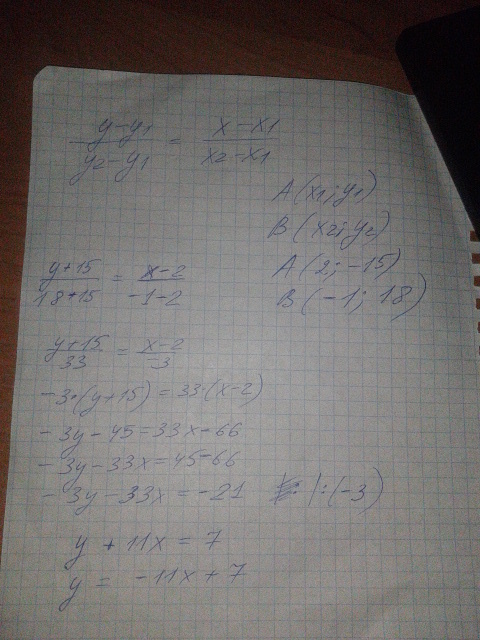 y-y1/y2-y1 = x-x1/x2-x1
A(x1; y1)
B(x2; y2)
A(2; -15)
B(-1; 18)
y+15/18+15 = x-2/-1-2
y+15/33 = x-2/-3
-3·(y+15)=33(x-2)
-3y-45=33x-66
-3y-33x=45-66
-3y-33x=-21 |:(-3)
y+11x=7
y=-11x+7